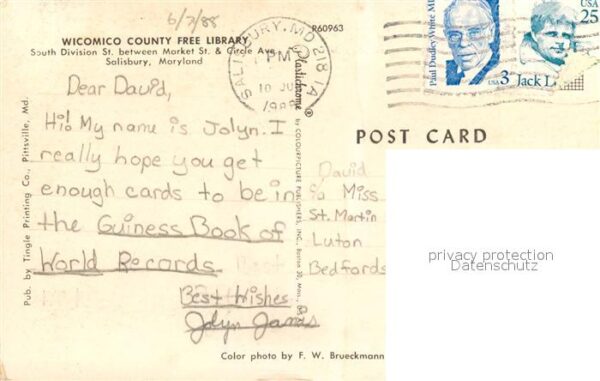 6/7/88
WICOMICO COUNTY FREE LIBRARY
South Division St. between Market St. & Circle Ave.
Salisbury, Maryland
P60963
SALISBURY, MD 218
PM
10
1988
Paul Dudley White MD
USA 3
USA
25
Jack L
POST CARD
Dear David,
Hi! My name is Jolyn. I
really hope you get
enough cards to be in
the Guiness Book of
World Records
Best Wishes
Jolyn James
David
c/o Miss
St. Martin
Luton
Bedfords
Pub. by Tingle Printing Co., Pittsville, Md.
Plastichrome ®
by COLOURPICTURE PUBLISHERS, INC., Boston 30, Mass.
Color photo by F. W. Brueckmann
privacy protection
Datenschutz